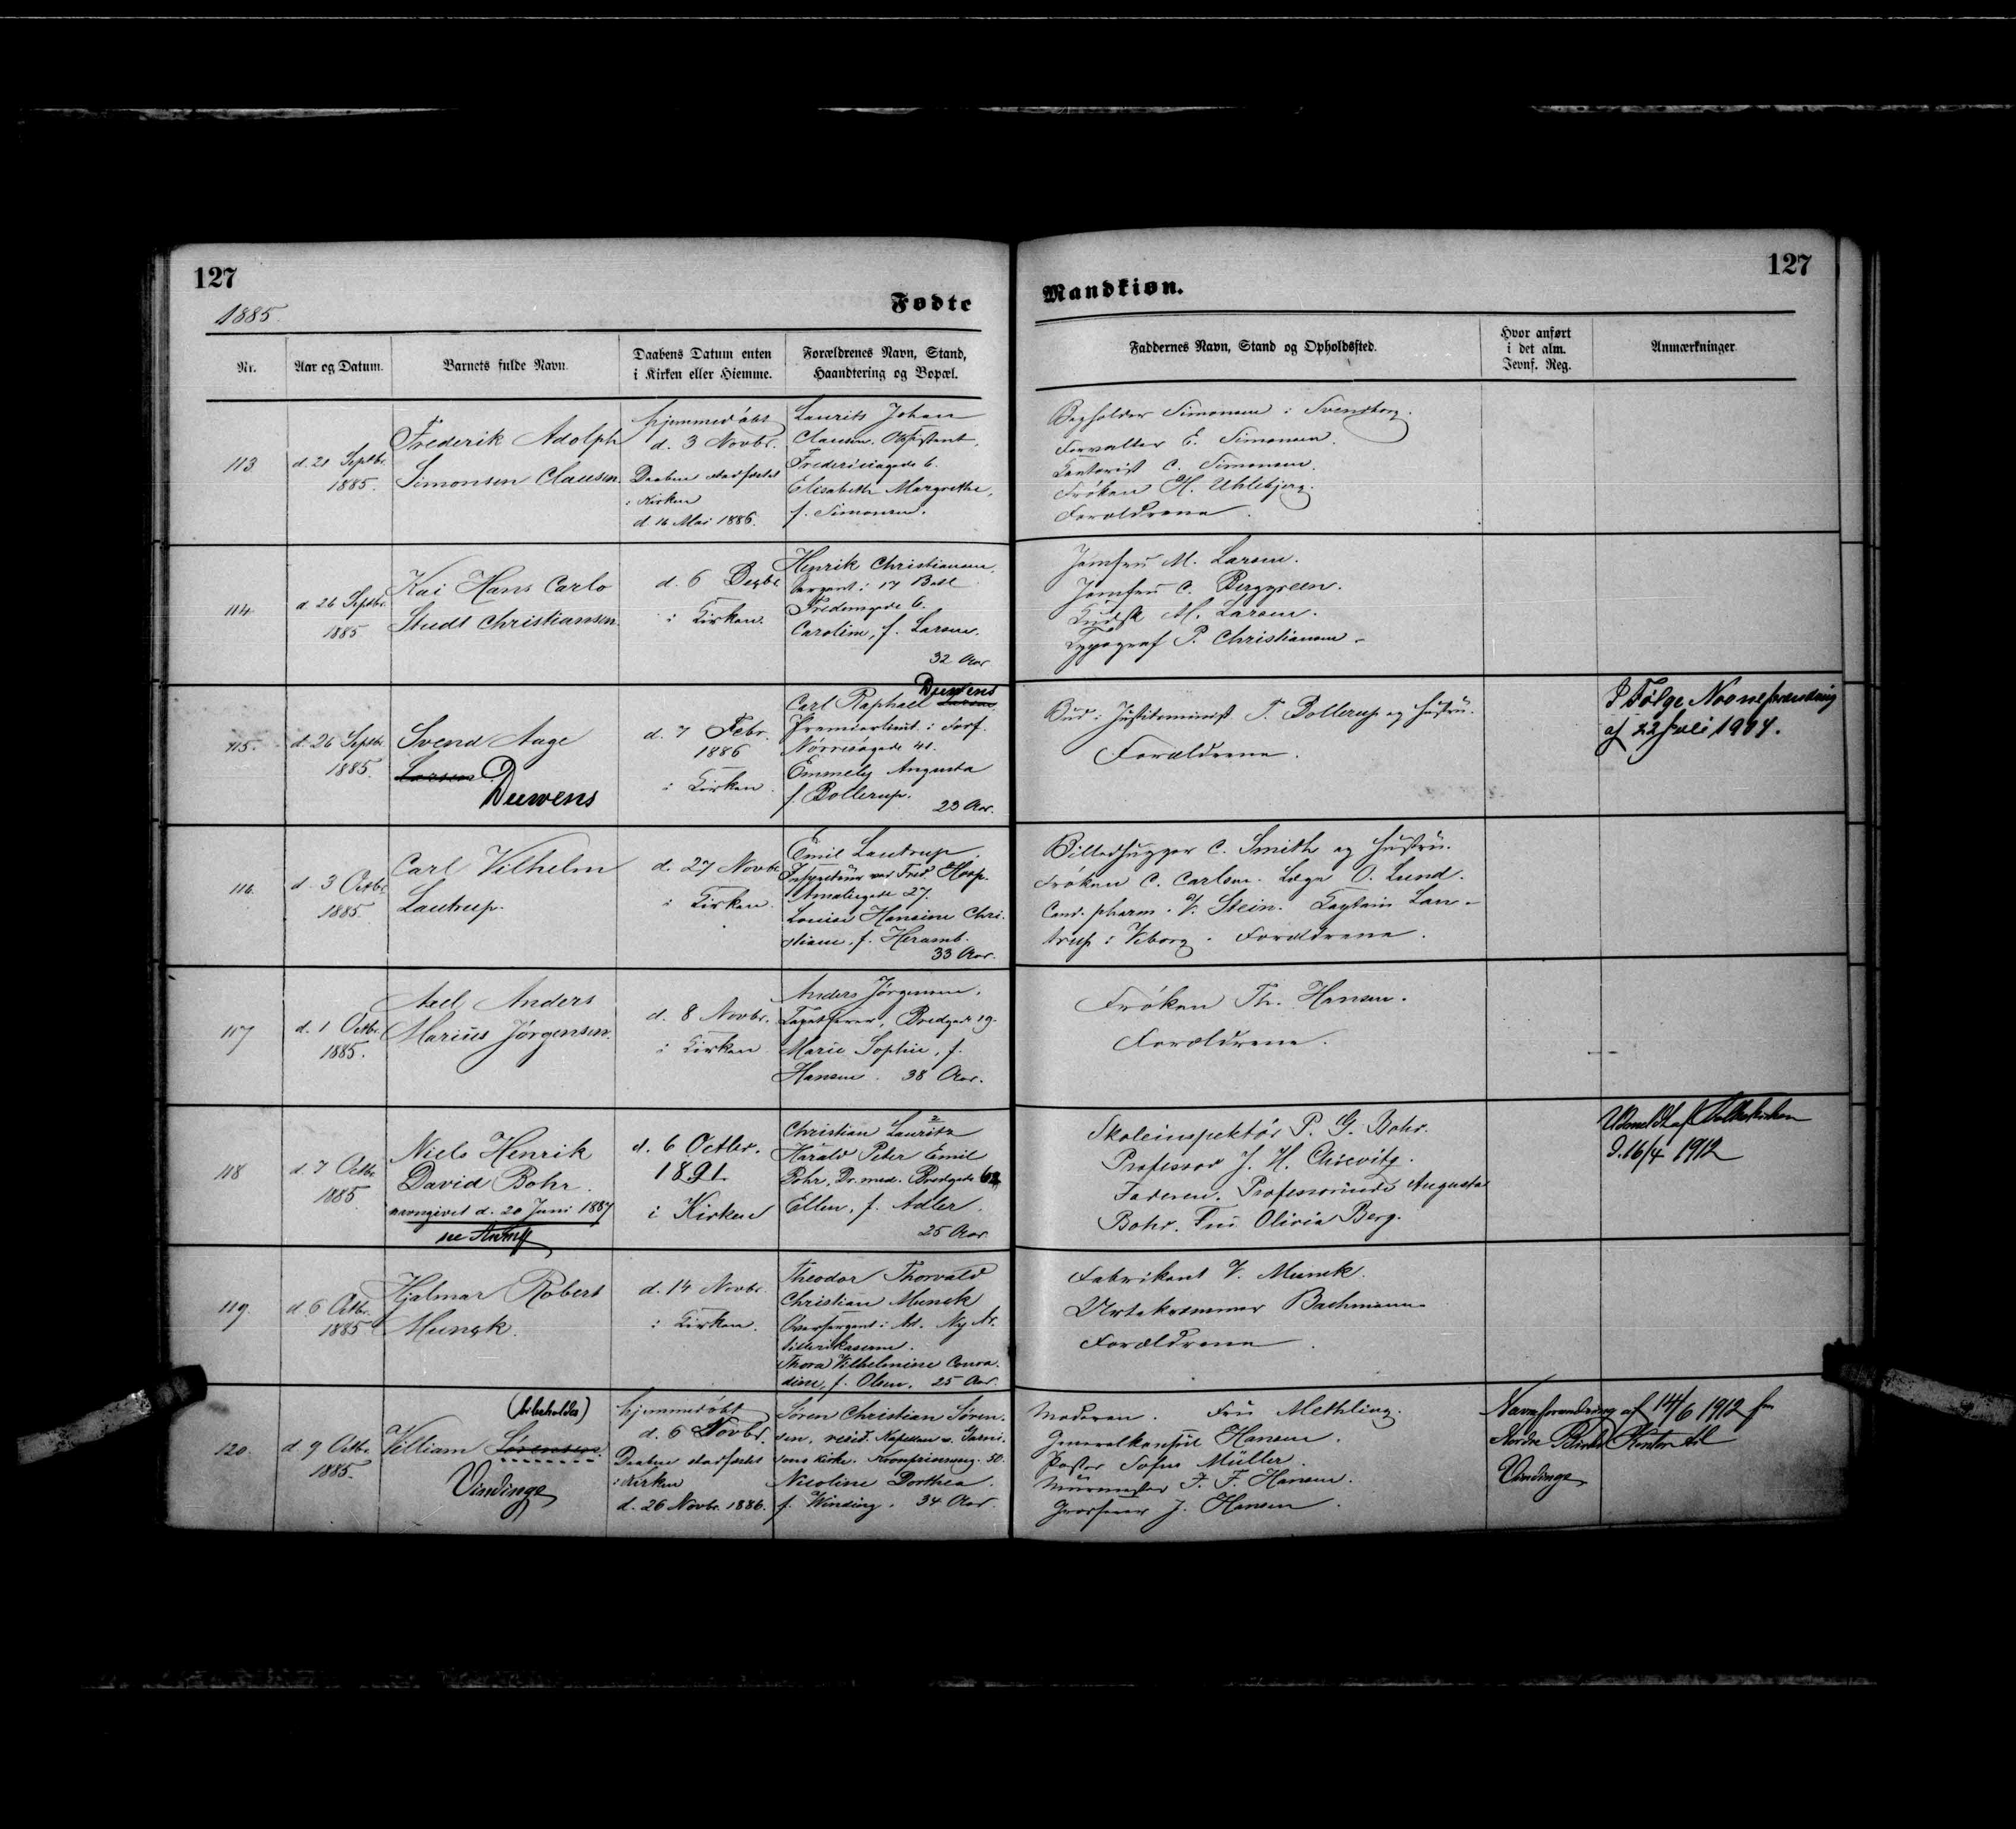 127
1885.
Fødte
Mandkiøn.
127
Nr.
Aar og Datum.
Barnets fulde Navn.
Daabens Datum enten
i Kirken eller Hiemme.
Forældrenes Navn, Stand,
Haandtering og Bopæl.
Faddernes Navn, Stand og Opholdssted.
Hvor anført
i det alm.
Jevnf. Reg.
Anmærkninger
113
d. 21 Septbr.
1885.
Frederik Adolph
Simonsen Clausen.
hjemmedøbt
d. 3 Novbr.
Daaben stadfæstet
i Kirken
d. 16 Mai 1886.
Laurits Johan
Clausen, Assistent,
Fredericiagade 6.
Elisabeth Margrethe,
f. Simonsen.
Simonsen i Svendborg.
Forvalter E. Simonsen.
Kontorist C. Simonsen.
Frøken H. Uhlebjerg.
Forældrene.
114.
d. 26 Septbr.
1885
Kai Hans Carlo
Studt Christiansen.
d. 6 Decbr.
i Kirken.
Henrik Christiansen,
Sergent i 17 Batl.
6.
Caroline, f. Larsen.
32 Aar
Jomfru M. Larsen.
Jomfru C. Berggreen.
Kudsk M. Larsen.
Typograf P. Christiansen.
115.
d. 26 Septbr.
1885.
Svend Aage
Larsen
Duwens
d. 7 Febr.
1886
i Kirken.
Duwens
Carl Raphael Larsen,
Premierlieut. i Forf.
Nørrevoldgade 41.
Emmely Augusta
f. Bollerup.
23 Aar.
Bud i Justitsminist. T. Bollerup og Hustru.
Forældrene.
I Følge Navneforandring
af 22 Juli 1904.
116.
d. 3 Octbr.
1885.
Carl Vilhelm
Lautrup.
d. 27 Novbr.
i Kirken.
Emil Lautrup,
Inspecteur ved Fred. Hosp.
Amaliegade 27.
Louise Hansine Chri-
stiane, f. Heramb.
33 Aar.
Billedhugger C. Smith og Hustru.
Frøken C. Carlsen. Læge O. Lund.
Cand. pharm. V. Stein. Captain Lau-
trup i Viborg. Forældrene.
117
d. 1 Octbr.
1885.
Axel Anders
Marius Jørgensen.
d. 8 Novbr.
i Kirken
Anders Jørgensen,
Bredgade 19.
Marie Sophie, f.
Hansen. 38 Aar.
Frøken Th. Hansen.
Forældrene.
118
d. 7 Octbr.
1885
Niels Henrik
David Bohr.
navngivet d. 20 Juni 1887
see Anmk
d. 6 Octbr.
1891.
i Kirken
Christian Lauritz
Harald Peter Emil
Bohr, Dr. med. Bredgade 62
Ellen, f. Adler.
25 Aar
Skoleinspektør P. G. Bohr.
Professor J. H. Chievitz.
Faderen. Professorinde Augusta
Bohr. Fru Olivia Berg.
Udmeldt af Folkekirken
d. 16/4 1912
119.
d. 6 Octbr.
1885
Hjalmar Robert
Munck.
d. 14 Novbr.
i Kirken.
Theodor Thorvald
Christian Munck
Oversergent i Art. Ny Ar-
tillerikaserne.
Thora Vilhelmine Conra-
dine, f. Olsen. 25 Aar.
Fabrikant V. Munck.
Urtekræmmer Bachmann
Forældrene
120.
d. 9 Octbr.
1885.
(bibeholdes)
Villiam Sørensen
Vindinge
hjemmedøbt
d. 6 Novbr.
Daaben stadfæstet
i Kirken
d. 26 Novbr. 1886.
Søren Christian Søren-
sen, resid. Kapellan v. Garni-
sons Kirke. Kronprinsensg. 30.
Nicoline Dorthea
f. Winding. 34 Aar.
Moderen. Fru Methling.
Generalkonsul Hansen.
Pastor Sofus Müller.
Murmester F. F. Hansen.
Grosserer J. Hansen.
Navneforandring af 14/6 1912 fra
Nordre Birks Kontor til
Vindinge